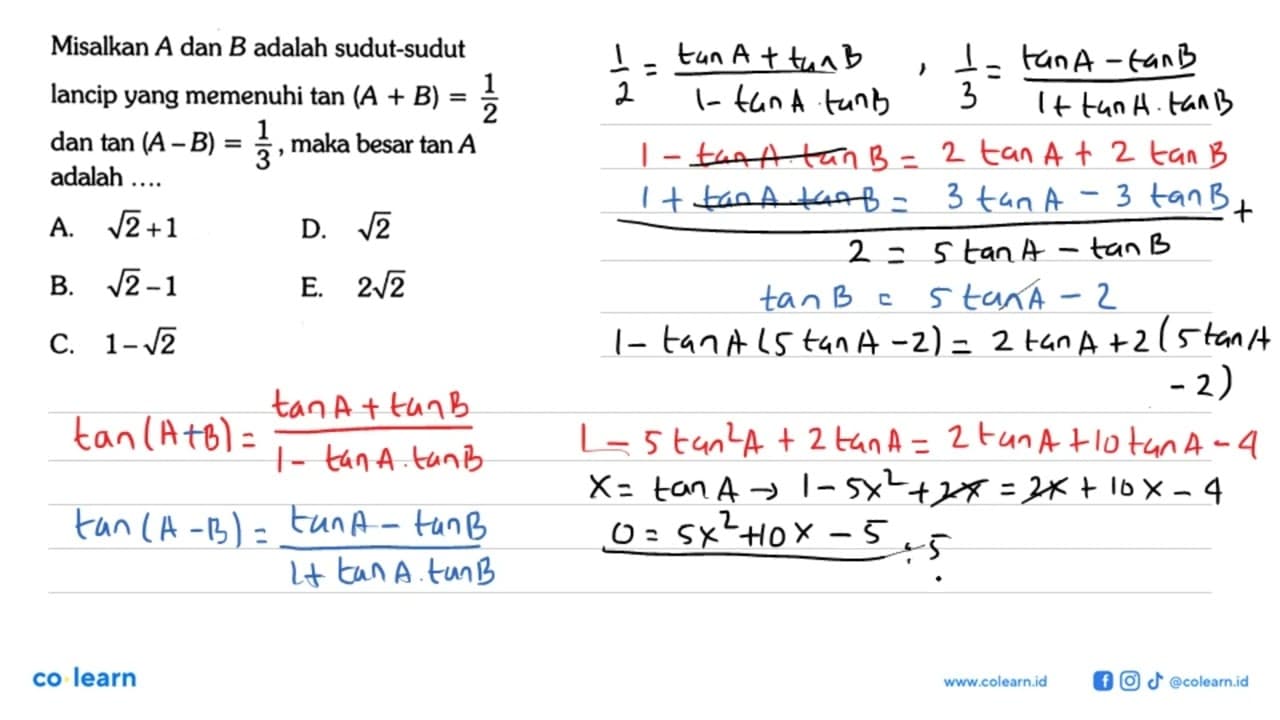 Misalkan A dan B adalah sudut-sudut
lancip yang memenuhi tan (A + B) = 1/2
dan tan (A – B) = 1/3, maka besar tan A
adalah ....
A. √2+1
D. √2
B. √2–1
E. 2√2
C. 1–√2
tan(A+B) = (tan A + tan B)/(1- tan A . tan B)
tan(A-B) = (tan A - tan B)/(1+ tan A . tan B)
1/2 = (tan A + tan B)/(1- tan A . tan B) , 1/3 = (tan A - tan B)/(1+ tan A . tan B)
1 - tan A . tan B = 2 tan A + 2 tan B
1 + tan A . tan B = 3 tan A - 3 tan B +
2 = 5 tan A - tan B
tan B = 5 tan A - 2
1 - tan A (5 tan A - 2) = 2 tan A + 2 (5 tan A
- 2)
1 - 5 tan²A + 2 tan A = 2 tan A + 10 tan A - 4
x = tan A → 1 - 5x² + 2x = 2x + 10x - 4
0 = 5x² + 10x - 5 : 5
co learn
www.colearn.id
@colearn.id